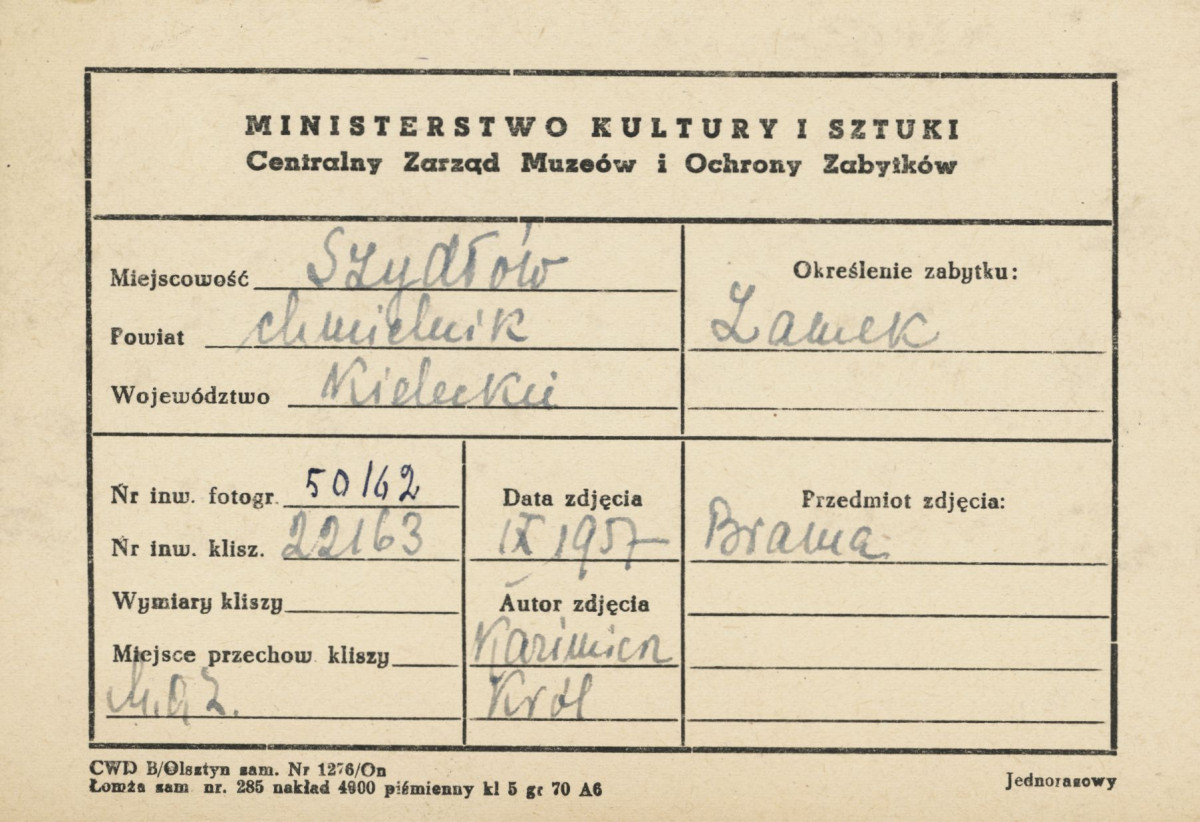 MINISTERSTWO KULTURY I SZTUKI
Centralny Zarząd Muzeów i Ochrony Zabytków
Miejscowość Szydłów
Powiat chmielnik
Województwo Kieleckie
Określenie zabytku:
Zamek
Nr inw. fotogr. 50162
Nr inw. klisz. 22163
Wymiary kliszy
Miejsce przechow kliszy
Data zdjęcia
IX 1957
Autor zdjęcia
Kazimierz
Król
Przedmiot zdjęcia:
Brama
CWD B/Olsztyn zam. Nr 1276/On
Łomża zam nr. 285 nakład 4000 piśmienny kl 5 gr 70 A6
Jednorazowy